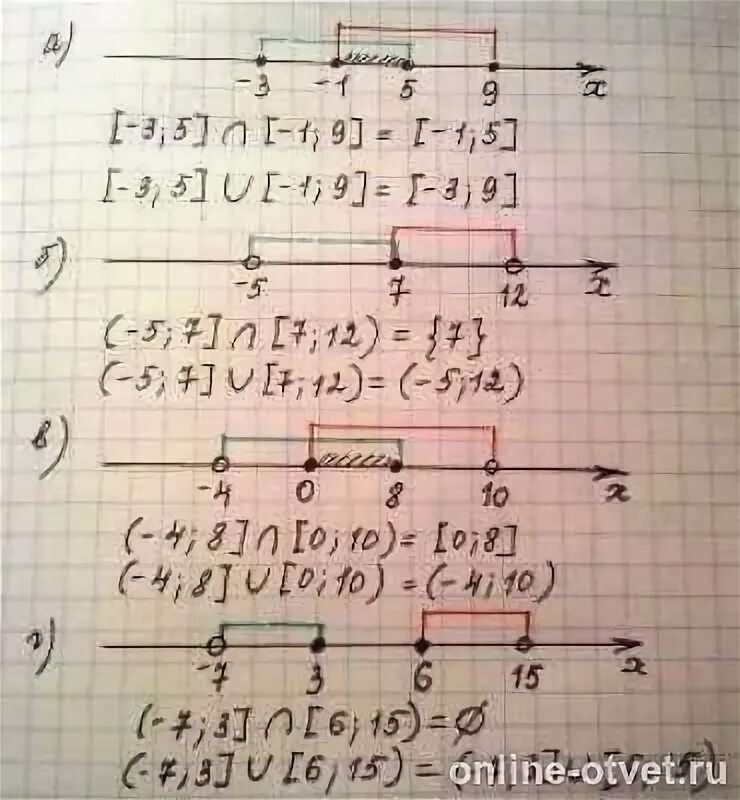 а)
-3 -1 5 9 x
[-3; 5] ∩ [-1; 9] = [-1; 5]
[-3; 5] ∪ [-1; 9] = [-3; 9]
б)
-5 7 12 x
(-5; 7] ∩ [7; 12) = {7}
(-5; 7] ∪ [7; 12) = (-5; 12)
в)
-4 0 8 10 x
(-4; 8] ∩ [0; 10) = [0; 8]
(-4; 8] ∪ [0; 10) = (-4; 10)
г)
-7 3 6 15 x
(-7; 3] ∩ [6; 15) = ∅
(-7; 3] ∪ [6; 15) =
online-otvet.ru